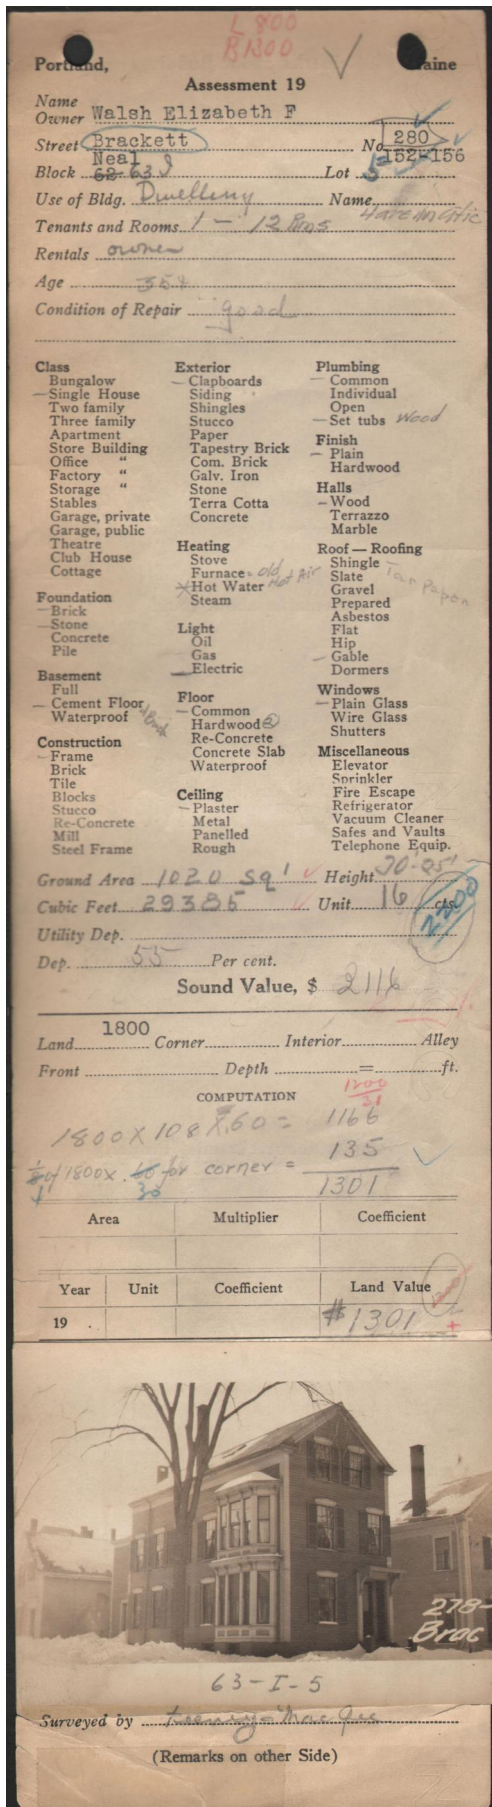 L 800
B 1300
Portland, Maine
Assessment 19
Name
Owner Walsh Elizabeth F
Street Brackett No. 280
Neal 152-156
Block 62 63 I Lot 5
Use of Bldg. Dwelling Name
Tenants and Rooms 1 - 12 Rms 4 are in attic
Rentals owner
Age 35+
Condition of Repair good
Class
Bungalow
Single House
Two family
Three family
Apartment
Store Building
Office "
Factory "
Storage "
Stables
Garage, private
Garage, public
Theatre
Club House
Cottage
Foundation
Brick
Stone
Concrete
Pile
Basement
Full
Cement Floor
Waterproof
Construction
Frame
Brick
Tile
Blocks
Stucco
Re-Concrete
Mill
Steel Frame
Exterior
Clapboards
Siding
Shingles
Stucco
Paper
Tapestry Brick
Com. Brick
Galv. Iron
Stone
Terra Cotta
Concrete
Heating
Stove
Furnace - old
Hot Water Hot Air
Steam
Light
Oil
Gas
Electric
Floor
Common
Hardwood 2
Re-Concrete
Concrete Slab
Waterproof
Ceiling
Plaster
Metal
Panelled
Rough
Plumbing
Common
Individual
Open
Set tubs Wood
Finish
Plain
Hardwood
Halls
Wood
Terrazzo
Marble
Roof — Roofing
Shingle Tar Paper
Slate
Gravel
Prepared
Asbestos
Flat
Hip
Gable
Dormers
Windows
Plain Glass
Wire Glass
Shutters
Miscellaneous
Elevator
Sprinkler
Fire Escape
Refrigerator
Vacuum Cleaner
Safes and Vaults
Telephone Equip.
Ground Area 1020 sq' Height 30'-25'
Cubic Feet 29385 Unit 16 cts.
2200
Utility Dep.
Dep. 55 Per cent.
Sound Value, $ 2116
Land 1800 Corner Interior Alley
Front Depth = ft.
COMPUTATION
1200
21
1800 X 108 X .60 = 1166
of 1800 x .60 for corner = 135
30
1301
Area Multiplier Coefficient
Year Unit Coefficient Land Value
1200
19 . $1301
278-
Brac
63-I-5
Surveyed by Feeney-MacGee
(Remarks on other Side)